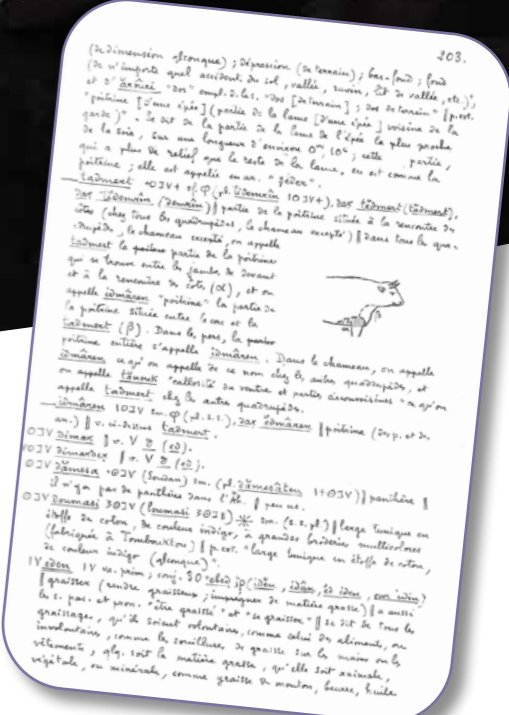 203.
(de dimension qlconque) ; dépression (de terrain) ; bas-fond ; fond
(de n'importe quel accident du sol, vallée, ravin, lit de vallée, etc.)";
et d' "dos" empl. d. le s. "dos [de terrain] ; dos de terrain" ‖ p. ext.
"poitrine [d'une épée] (partie de la lame [d'une épée] voisine de la
garde)". Se dit de la partie de la lame de l'épée la plus proche
de la soie, sur une longueur d'environ 0m,10c ; cette partie,
qui a plus de relief que le reste de la lame, en est comme la
poitrine ; elle est appelée en ar. "
— tadmert sf. φ (pl. tidemârin), daɤ tădmert (tĕdmert),
‖ partie de la poitrine située à la rencontre des
côtes (chez tous les quadrupèdes, le chameau excepté) ‖ dans tous les qua-
drupèdes, le chameau excepté, on appelle
tadmert la partie de la poitrine
qui se trouve entre les jambes de devant
et à la rencontre des côtes (α), et on
appelle idmâren "poitrine" la partie de
la poitrine située entre le cou et la
tadmert (β). Dans les pers., la
poitrine entière s'appelle idmâren. Dans le chameau, on appelle
idmâren ce qu'on appelle de ce nom chez les autres quadrupèdes, et
on appelle "callosité du ventre et parties circonvoisines" ce qu'on
appelle tadmert chez les autres quadrupèdes.
— idmâren sm. φ (pl. s. s.), daɤ ĕdmâren ‖ poitrine (des p. et des
an.) ‖ v. ci-dessus tadmert.
dimaɤ ‖ v.
‖ v.
dămesa (Soudan) sm. (pl. dămesâten) ‖ panthère ‖
il n'y a pas de panthère dans l'Ăh. ‖ peu us.
doumasi (loumasi) sm. (s. s. pl.) ‖ large tunique en
étoffe de coton, de couleur indigo, à grandes broderies multicolores
(fabriquée à Tombouktou) ‖ p. ext. "large tunique en étoffe de coton,
de couleur indigo (qlconque)".
eden va. prim ; conj.
‖ graisser (rendre graisseux ; imprégner de matière grasse) ‖ a aussi
les s. pas. et pron. "être graissé" et "se graisser" ‖ se dit de tous les
graissages, qu'ils soient volontaires, comme celui des aliments, ou
involontaires, comme les souillures de graisse sur les mains ou les
vêtements, qlq. soit la matière grasse, qu'elle soit animale,
végétale, ou minérale, comme graisse de mouton, beurre, huile